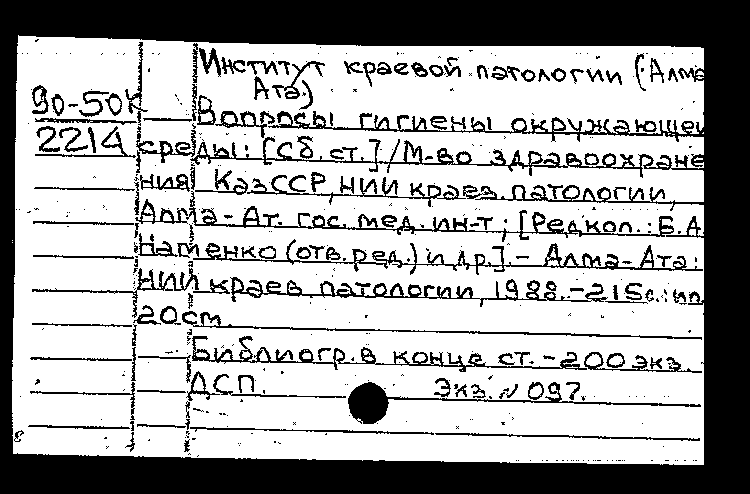 Институт краевой патологии (Алма
Ата)
90-50К
2214
Вопросы гигиены окружающей
среды: [Сб. ст.] / М-во здравоохране
ния КазССР, НИИ краев. патологии,
Алма-Ат. гос. мед. ин-т; [Редкол.: Б.А.
Натенко (отв. ред.) и др.]. - Алма-Ата:
НИИ краев. патологии, 1988. - 215с.: ил.
20 см.
Библиогр. в конце ст. - 200 экз.
ДСП. Экз. № 097.
8